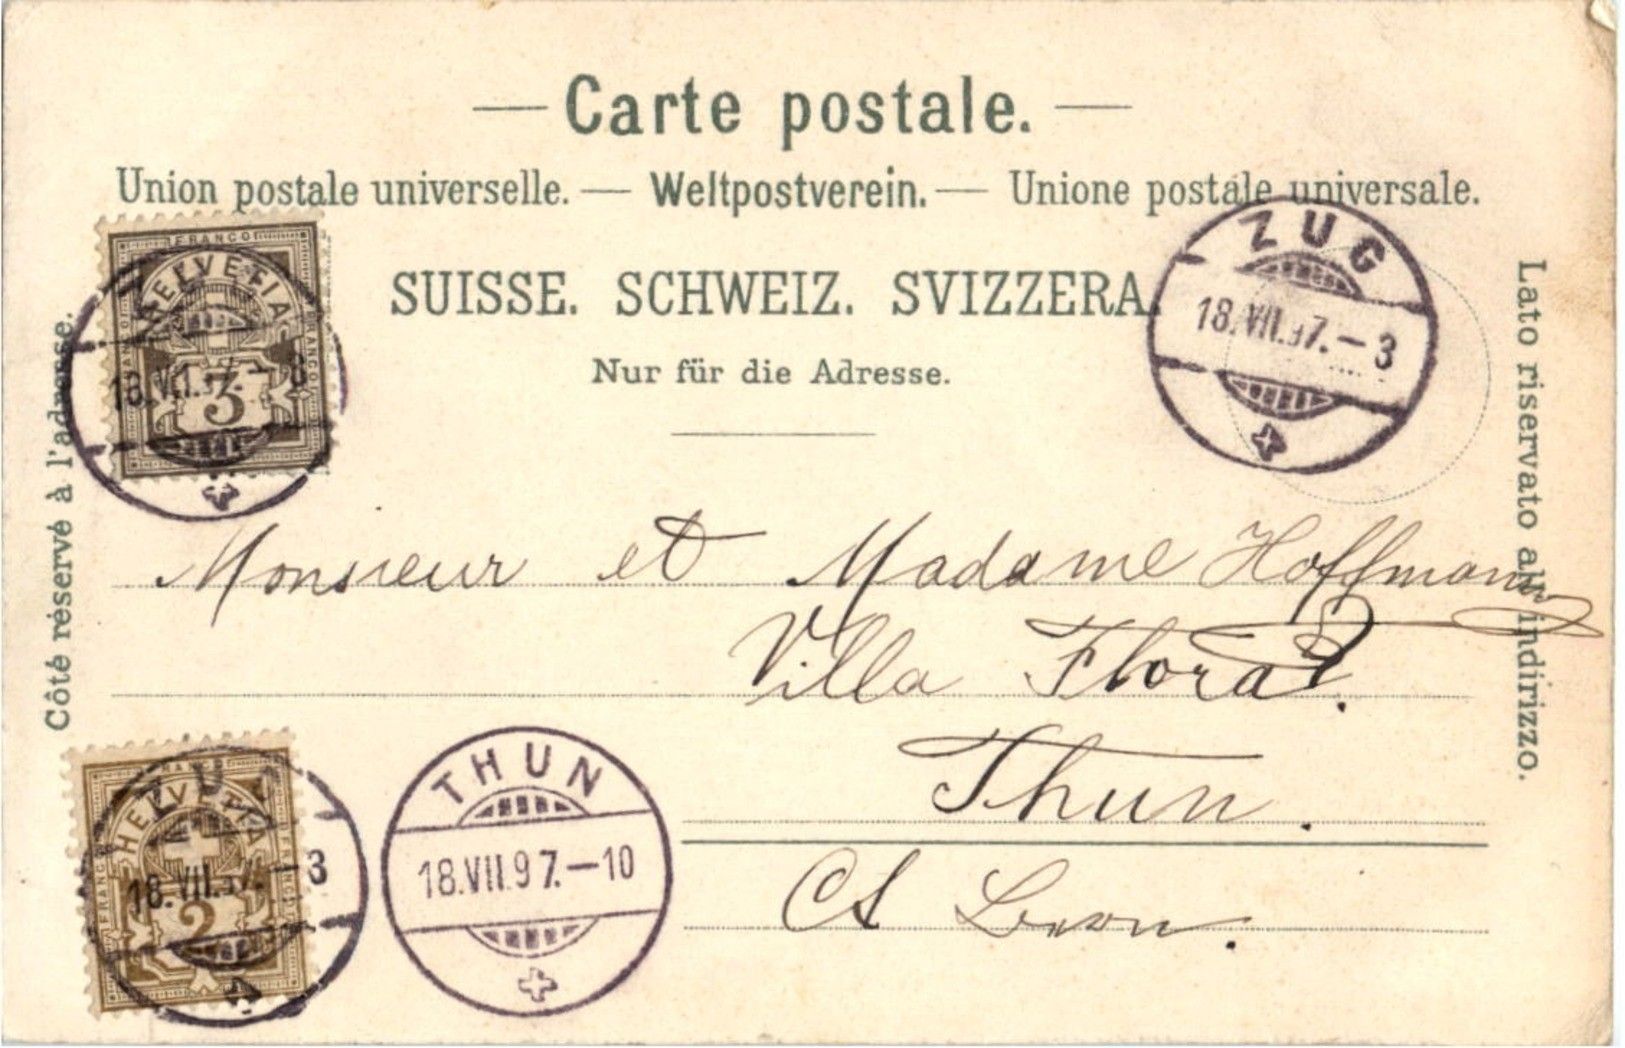 Carte postale.
Union postale universelle. — Weltpostverein. — Unione postale universale.
SUISSE. SCHWEIZ. SVIZZERA.
Nur für die Adresse.
Côté réservé à l'adresse.
Lato riservato all' indirizzo.
FRANCO
HELVETIA
FRANCO
FRANCO
3
ZUG
18.VII.97.—3
Monsieur et Madame Hoffmann
Villa Flora.
Thun.
Ct Bern.
FRANCO
HELVETIA
FRANCO
FRANCO
2
ZUG
18.VII.97.—3
THUN
18.VII.97.—10